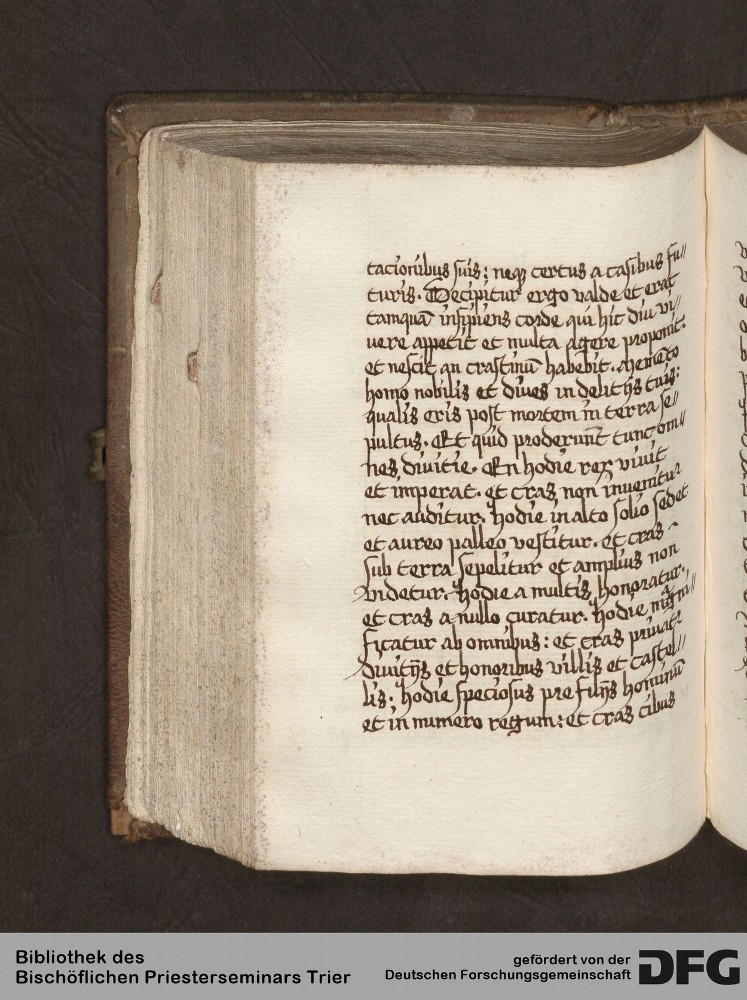 tacionibus suis: neqꝫ certus a casibus fu//
turis. Decipitur ergo valde et erat
tamquā insipiens corde qui hic diu vi//
uere appetit et multa agere proponit.
et nescit an crastinū habebit. Memēto
homo nobilis et diues in delitijs tuis:
qualis eris post mortem in terra se//
pultus. Et quid proderunt tunc om//
nes diuitie. En hodie rex viuit
et imperat. et cras non inuenitur
nec auditur. hodie in alto solio sedet
et aureo palleo vestitur. et cras
sub terra sepelitur et amplius non
videtur. hodie a multis honoratur.
et cras a nullo curatur. hodie magni//
ficatur ab omnibus: et cras priuatr
diuitijs et honoribus villis et castel//
lis: hodie speciosus pre filijs hominū
et in numero regum: et cras cibus
Bibliothek des
Bischöflichen Priesterseminars Trier
gefördert von der
Deutschen Forschungsgemeinschaft
DFG